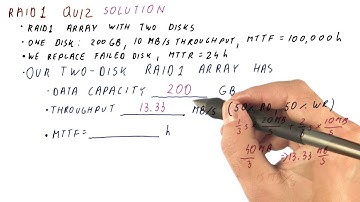 RAID1 QUIZ SOLUTION
• RAID1 ARRAY WITH TWO DISKS
• ONE DISK: 200GB, 10 MB/s THROUGHPUT, MTTF = 100,000h
• WE REPLACE FAILED DISK, MTTR = 24h
• OUR TWO-DISK RAID1 ARRAY HAS
• DATA CAPACITY 200 GB
• THROUGHPUT 13.33 MB/s (50% RD, 50% WR)
• MTTF = h
40MB/3 → 13.33 MB/s